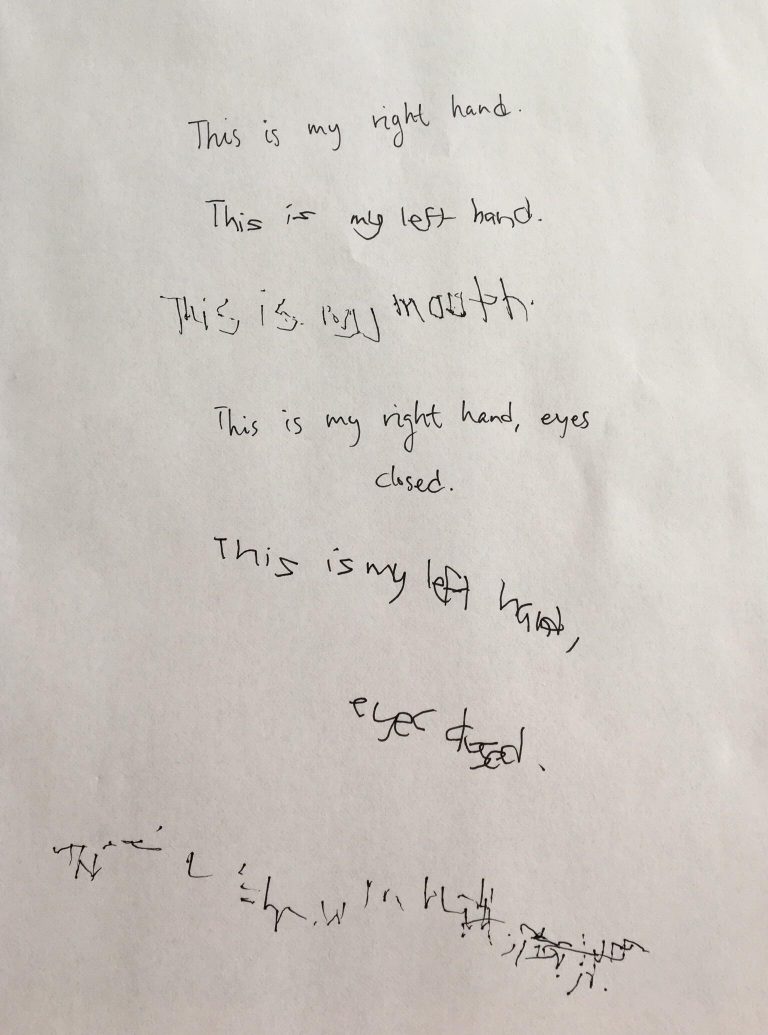 This is my right hand.
This is my left hand.
This is my mouth.
This is my right hand, eyes
closed.
This is my left hand,
eyes closed.